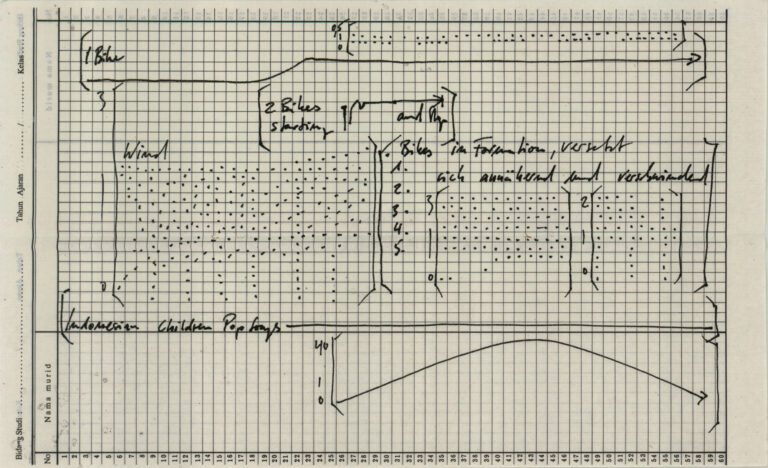 0,5
1
0
1 Bike
3
2 Bikes
starting
and
Wind
Bikes in Formation, versetzt
sich annähernd und verschwindend
1.
2.
3.
4.
5.
3
1
0
2
1
0
0
Indonesian Children Pop Songs
40
1
0
Bidang Studi :
Tahun Ajaran / Kelas
No
Nama murid
1 2 3 4 5 6 7 8 9 10 11 12 13 14 15 16 17 18 19 20 21 22 23 24 25 26 27 28 29 30 31 32 33 34 35 36 37 38 39 40 41 42 43 44 45 46 47 48 49 50 51 52 53 54 55 56 57 58 59 60